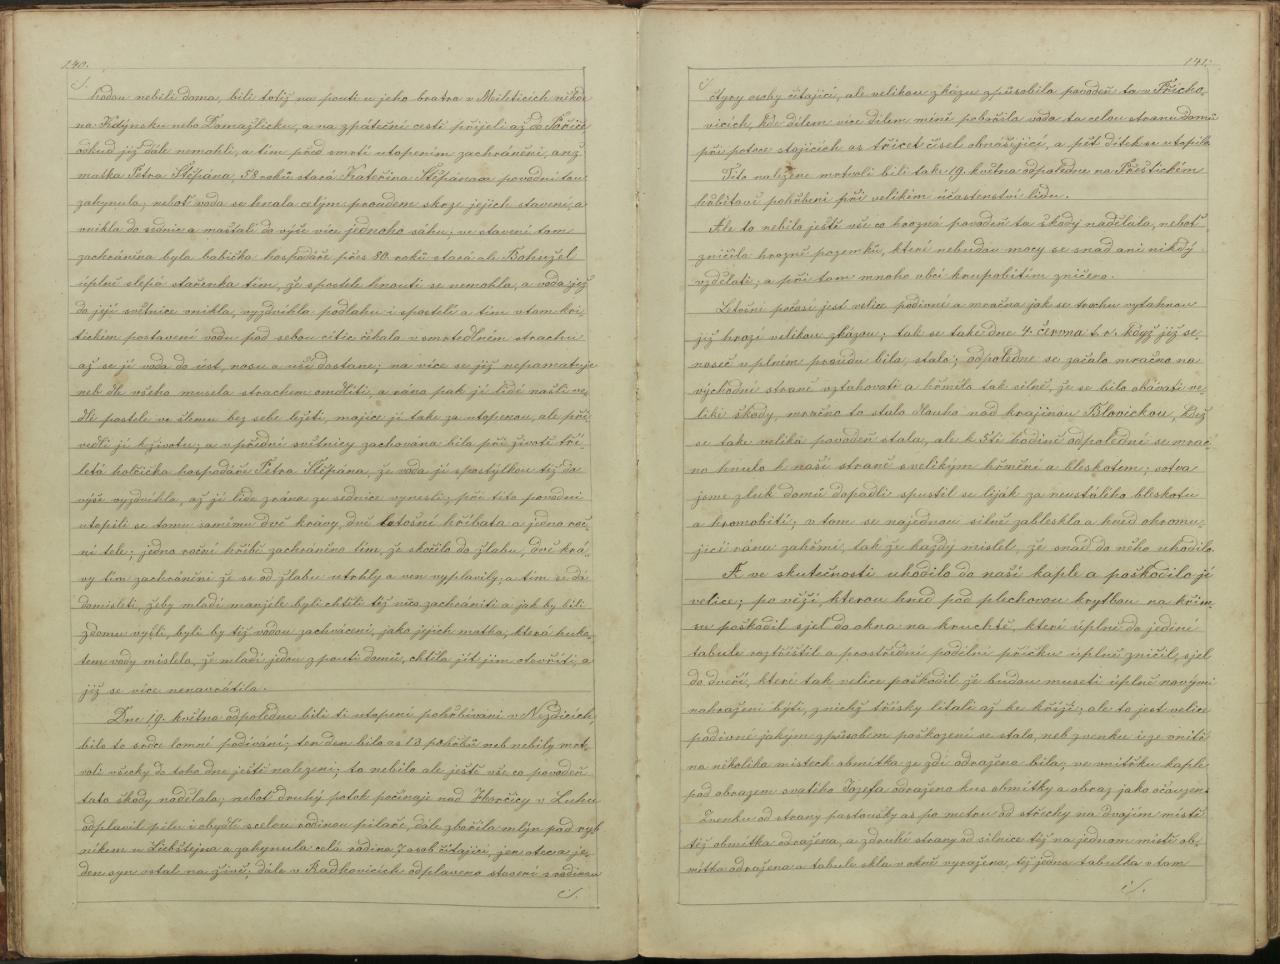 140.
./.
hodou nebili doma, bili totiž na pouti u jeho bratra v Mileticích někde
na Kdýnsku nebo Domažlicku, a na zpáteční cestě přijeli až do Poříčí
odkud již dále nemohli, a tím před smrtí utopením zachráněni, anž
matka Petra Štěpána, 58 roků stará Kateřina Štěpánova povodní tou
zahynula, neboť voda se hnala celým proudem skrze jejich stavení, a
vnikla do sednice a maštalí do výše více jednoho sáhu; ve stavení tom
zachráněna byla babička hospodáře přes 80 roků stará ale Bohužel
úplně slepá stařenka tím, že s postele hnouti se nemohla, a voda již
do její světnice vnikla, vyzdvihla podlahu i s postelí a tím v tom kri,
tickém postavení vodu pod sebou cítíc čekala v smrtedlném strachu
až se jí voda do úst, nosu a uší dostane; na více se již nepamatuje
neb dle všeho musela strachem omdlíti, a ráno pak jí lidé našli ve,
dle postele ve šlemu bez sebe ležeti, majíce jí také za utopenou, ale při,
vedli jí k životu; a v přední světnicy zachována bila při životě tří,
letá holčička hospodáře Petra Štěpána, že voda jí s postýlkou též do
výše vyzdvihla, až jí lidé z rána ze sednice vynesli; při této povodni
utopili se tomu samému dvě krávy, dvě letošní hříbata a jedno roč,
ní tele; jedno roční hříbě zachráněno tím, že skočilo do žlabu, dvě krá,
vy tím zachráněni že se od žlabu utrhly a ven vyplavily; a tím se dá
domisleti, žeby mladí manželé byli chtěli též něco zachrániti a jak by bili
z domu vyšli, byli by též vodou zachváceni, jako jejich matka, která huko,
tem vody mislela, že mladí jedou z pouti domů, chtěla jít jim otevříti, a
již se více nenavrátila.
Dne 19. května odpoledne bili ti utopení pohřbíváni v Nezdicích,
bilo to srdce lomné podívání; ten den bilo as 13 pohřbů neb nebily mrt,
voli všecky do toho dne ještě nalezeni; to nebilo ale ještě vše co povodeň
tato škody nadělala, neboť druhý potok počínaje nad Horčicy v Luhu
odplavil pilu i obydlí s celou rodinou pilaře, dále zbořila mlýn pod ryb,
níkem u Liebštejna a zahynula celá rodina 7 osob čítající, jen otec a je,
den syn ostal na živě; dále v Radkovicích odplaveno stavení s rodinou
./.
141.
./.
čtyry osoby čítající, ale velikou zkázu spůsobila povodeň ta v Přícho,
vicích, kde dílem více dílem méně pobořila voda ta celou stranu domů
při potoce stojících as třicet čísel obnášející, a pět dítek se utopilo
Tito nalezené mrtvoli bili také 19. května odpoledne na Přeštickém
hřbitově pohřbeni při velikém účastenství lidu.
Ale to nebilo ještě vše co hrozná povodeň ta škody nadělala, neboť
zničila hrozně pozemků, které nebudou mocy se snad ani nikdý
vzdělati; a při tom mnoho obcí krupobitím zničeno.
Letošní počasí jest velice podivné a mračna jak se trochu vytahnou
již hrozí velikou zkázou; tak se také dne 4. června t. r. když již se,
noseč v plném proudu bila, stalo; odpoledne se začalo mračno na
východní straně vztahovati a hřmělo tak silně, že se bilo obávati ve,
liké škody, mračno to stálo dlouho nad krajinou Blovickou, kdež
se také veliká povodeň stala, ale k 5té hodině odpolední se mrač,
no hnulo k naší straně s velikým hřmění a bleskotem; sotva
jsme zluk domů dopadli spustil se liják za neustálého bleskotu
a hromobití; v tom se najednou silně zableskla a hned ohromu,
jící ránu zahřmí, tak že každý mislel, že snad do něho uhodilo.
A ve skutečnosti uhodilo do naší kaple a poškodilo jí
velice; po věži, kterou hned pod plechovou krytbou na krám,
su poškodil sjel do okna na kruchtě, které úplně do jediné
tabule roztříštil a prostřední podélní příčku úplně zničil, sjel
do dveří, které tak velice poškodil že budou museti úplně novými
nahraženi býti, z nichž třísky lítali až ke kříži; ale to jest velice
podivné jakým způsobem poškození se stalo, neb zvenku i ze vnitř
na několika místech obmítka ze zdi odražena bila; ve vnitřku kaple
pod obrazem svatého Jozefa odraženo kus obmítky a obraz jako očouzen.
Zvenku od strany pastoušky as po metru od střechy na dvojím místě
též obmítka odražena, a z druhé strany od silnice též na jednom místě ob,
mítka odražena a tabule skla v okně vyražena, též jedna tabulka v tom
./.